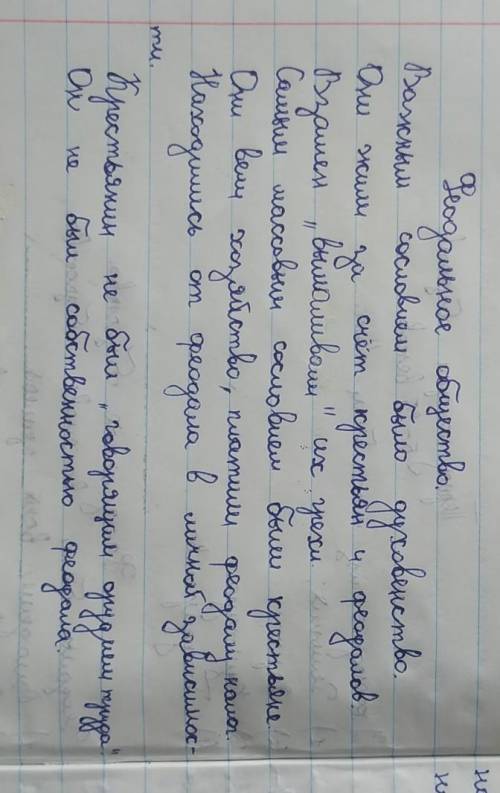 Феодальное общество.
Важным сословием было духовенство.
Они жили за счёт крестьян и феодалов.
Взамен „вымаливали" их грехи.
Самым массовым сословием были крестьяне.
Они вели хозяйство, платили феодалу налог.
Находились от феодала в личной зависимос-
ти.
Крестьянин не был „говорящим орудием труда".
Он не был собственностью феодала.